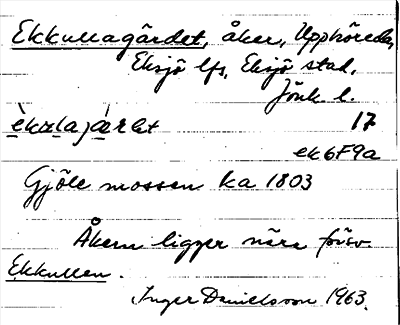 Ekkullagärdet, åker, Uppköreda,
Eksjö lfs, Eksjö stad,
Jönk l.
17
ek6F9a
Gjöle mossen ka 1803
Åkern ligger nära
Ekkullen.
Inger Danielsson 1963.